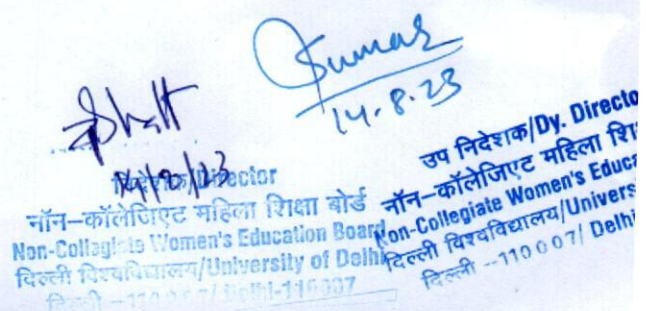 Kumar
14-8-23
14/8/23
निदेशक/Director
नॉन-कॉलेजिएट महिला शिक्षा बोर्ड
Non-Collegiate Women's Education Board
दिल्ली विश्वविद्यालय/University of Delhi
दिल्ली -110007/ Delhi-110007
उप निदेशक/Dy. Directo
नॉन-कॉलेजिएट महिला शि
Non-Collegiate Women's Educa
दिल्ली विश्वविद्यालय/Univers
दिल्ली -110007/ Delhi